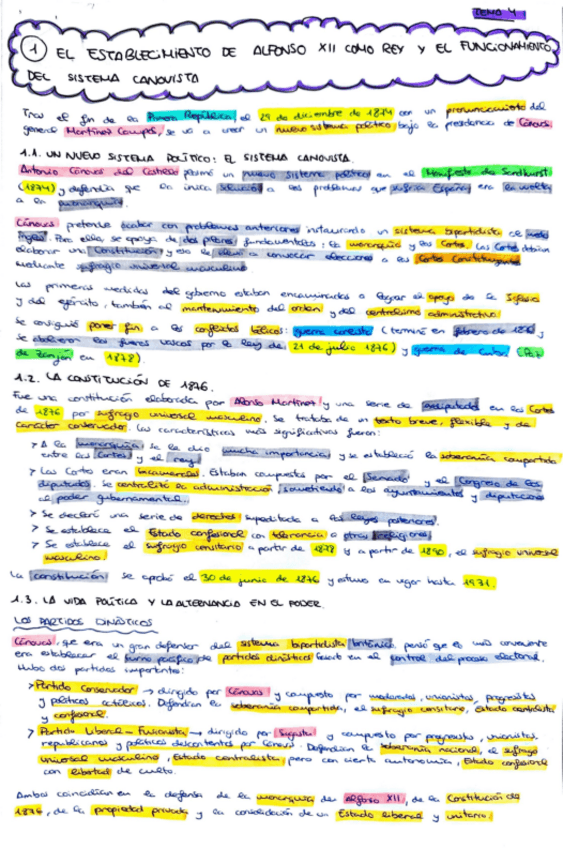 TEMA 4
1 EL ESTABLECIMIENTO DE ALFONSO XII COMO REY Y EL FUNCIONAMIENTO
DEL SISTEMA CANOVISTA
Tras el fin de la Primera República, el 29 de diciembre de 1874 con un pronunciamiento del
general Martínez Campos, se va a crear un nuevo sistema político bajo la presidencia de Cánovas.
1.1. UN NUEVO SISTEMA POLÍTICO: EL SISTEMA CANOVISTA.
Antonio Cánovas del Castillo plasmó un nuevo sistema político en el Manifiesto de Sandhurst
(1874) y defendía que la única solución a los problemas que sufría España era la vuelta
a la monarquía.
Cánovas pretende acabar con problemas anteriores instaurando un sistema bipartidista al modo
inglés. Para ello, se apoya de dos pilares fundamentales: la monarquía y las Cortes. Las Cortes debían
elaborar una Constitución y eso le lleva a convocar elecciones a las Cortes Constituyentes
mediante sufragio universal masculino
Las primeras medidas del gobierno estaban encaminadas a lograr el apoyo de la Iglesia
y del ejército, también al mantenimiento del orden y del centralismo administrativo.
Se consiguió poner fin a los conflictos bélicos: guerra carlista (terminó en febrero de 1876 y
se abolieron los fueros vascos por la ley del 21 de julio 1876) y guerra de Cuba (Paz
de Zanjón en 1878).
1.2. LA CONSTITUCIÓN DE 1876.
Fue una constitución elaborada por Alonso Martínez y una serie de en las Cortes
de 1876 por sufragio universal masculino. Se trataba de un texto breve, flexible y de
carácter conservador. Las características más significativas fueron:
> A la monarquía se le dio mucha importancia y se estableció la soberanía compartida
entre las Cortes y el rey.
> Las Cortes eran bicamerales. Estaban compuestas por el Senado y el Congreso de los
diputados. Se centralizó la administración, sometiendo a los ayuntamientos y diputaciones
al poder gubernamental.
> Se declaró una serie de derechos supeditada a las leyes posteriores.
> Se establece el Estado confesional con tolerancia a otras religiones.
> Se establece el sufragio censitario a partir de 1878 y a partir de 1890, el sufragio universal
masculino.
La constitución se aprobó el 30 de junio de 1876 y estuvo en vigor hasta 1931.
1.3. LA VIDA POLÍTICA Y LA ALTERNANCIA EN EL PODER.
LOS PARTIDOS DINÁSTICOS
Cánovas, que era un gran defensor del sistema bipartidista británico, pensó que es más conveniente
era establecer el turno pacífico de partidos dinásticos basado en el control del proceso electoral.
Hubo dos partidos importantes:
> Partido Conservador → dirigido por Cánovas y compuesto por moderados, unionistas, progresistas
y políticos católicos. Defendían la soberanía compartida, el sufragio censitario, Estado centralista
y confesional.
> Partido Liberal-Fusionista → dirigido por Sagasta y compuesto por progresistas, unionistas,
republicanos y políticos descontentos por Cánovas. Defendían la soberanía nacional, el sufragio
universal masculino, Estado centralista pero con cierta autonomía, Estado confesional
con libertad de culto.
Ambos coincidían en la defensa de la monarquía de Alfonso XII, de la Constitución de
1876, de la propiedad privada y la consolidación de un Estado liberal y unitario.